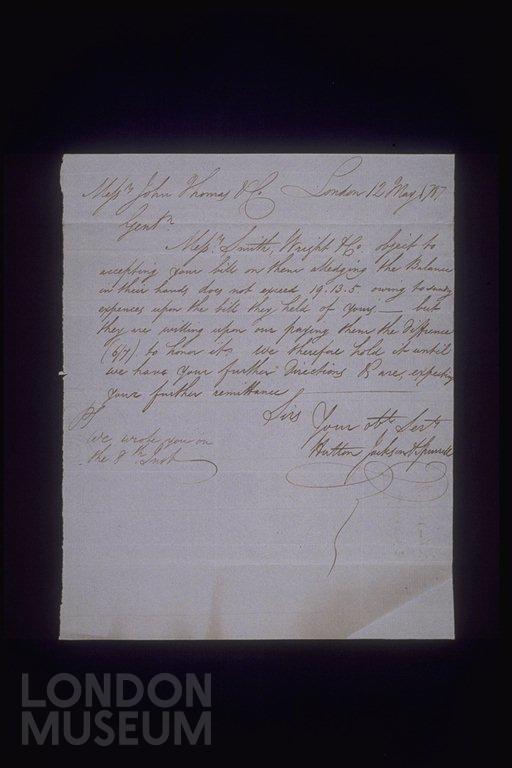 Messrs. John Thomas & Co. London 12 May
Gentn.
Messrs. Smith, Wright & Co. object to
accepting your bill on them alledging the Balance
in their hands does not exceed 19.13.5 owing to sundry
expences upon the bill they held of yours — but
they are willing upon our paying them the difference
(6/7) to honor it. We therefore hold it until
we have your further Directions & are, expecting
your further remittance
Sirs Your obt. Servts.
Hutton Jackson &
PS
We wrote you on
the 8th. Inst.
LONDON
MUSEUM